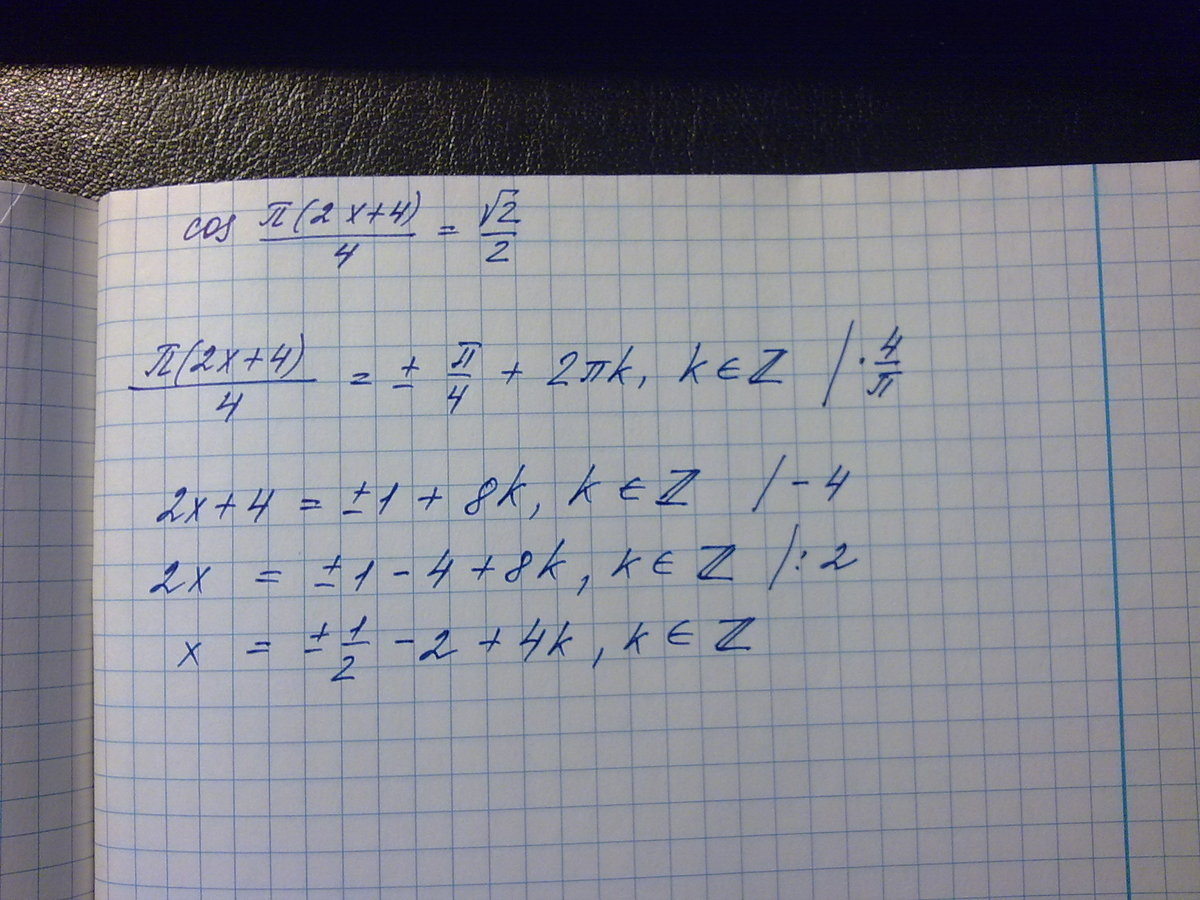 cos π(2x+4)/4 = √2/2
π(2x+4)/4 = ± π/4 + 2πk, k ∈ ℤ / · 4/π
2x+4 = ±1 + 8k, k ∈ ℤ / - 4
2x = ±1 - 4 + 8k, k ∈ ℤ / : 2
x = ± 1/2 - 2 + 4k, k ∈ ℤ